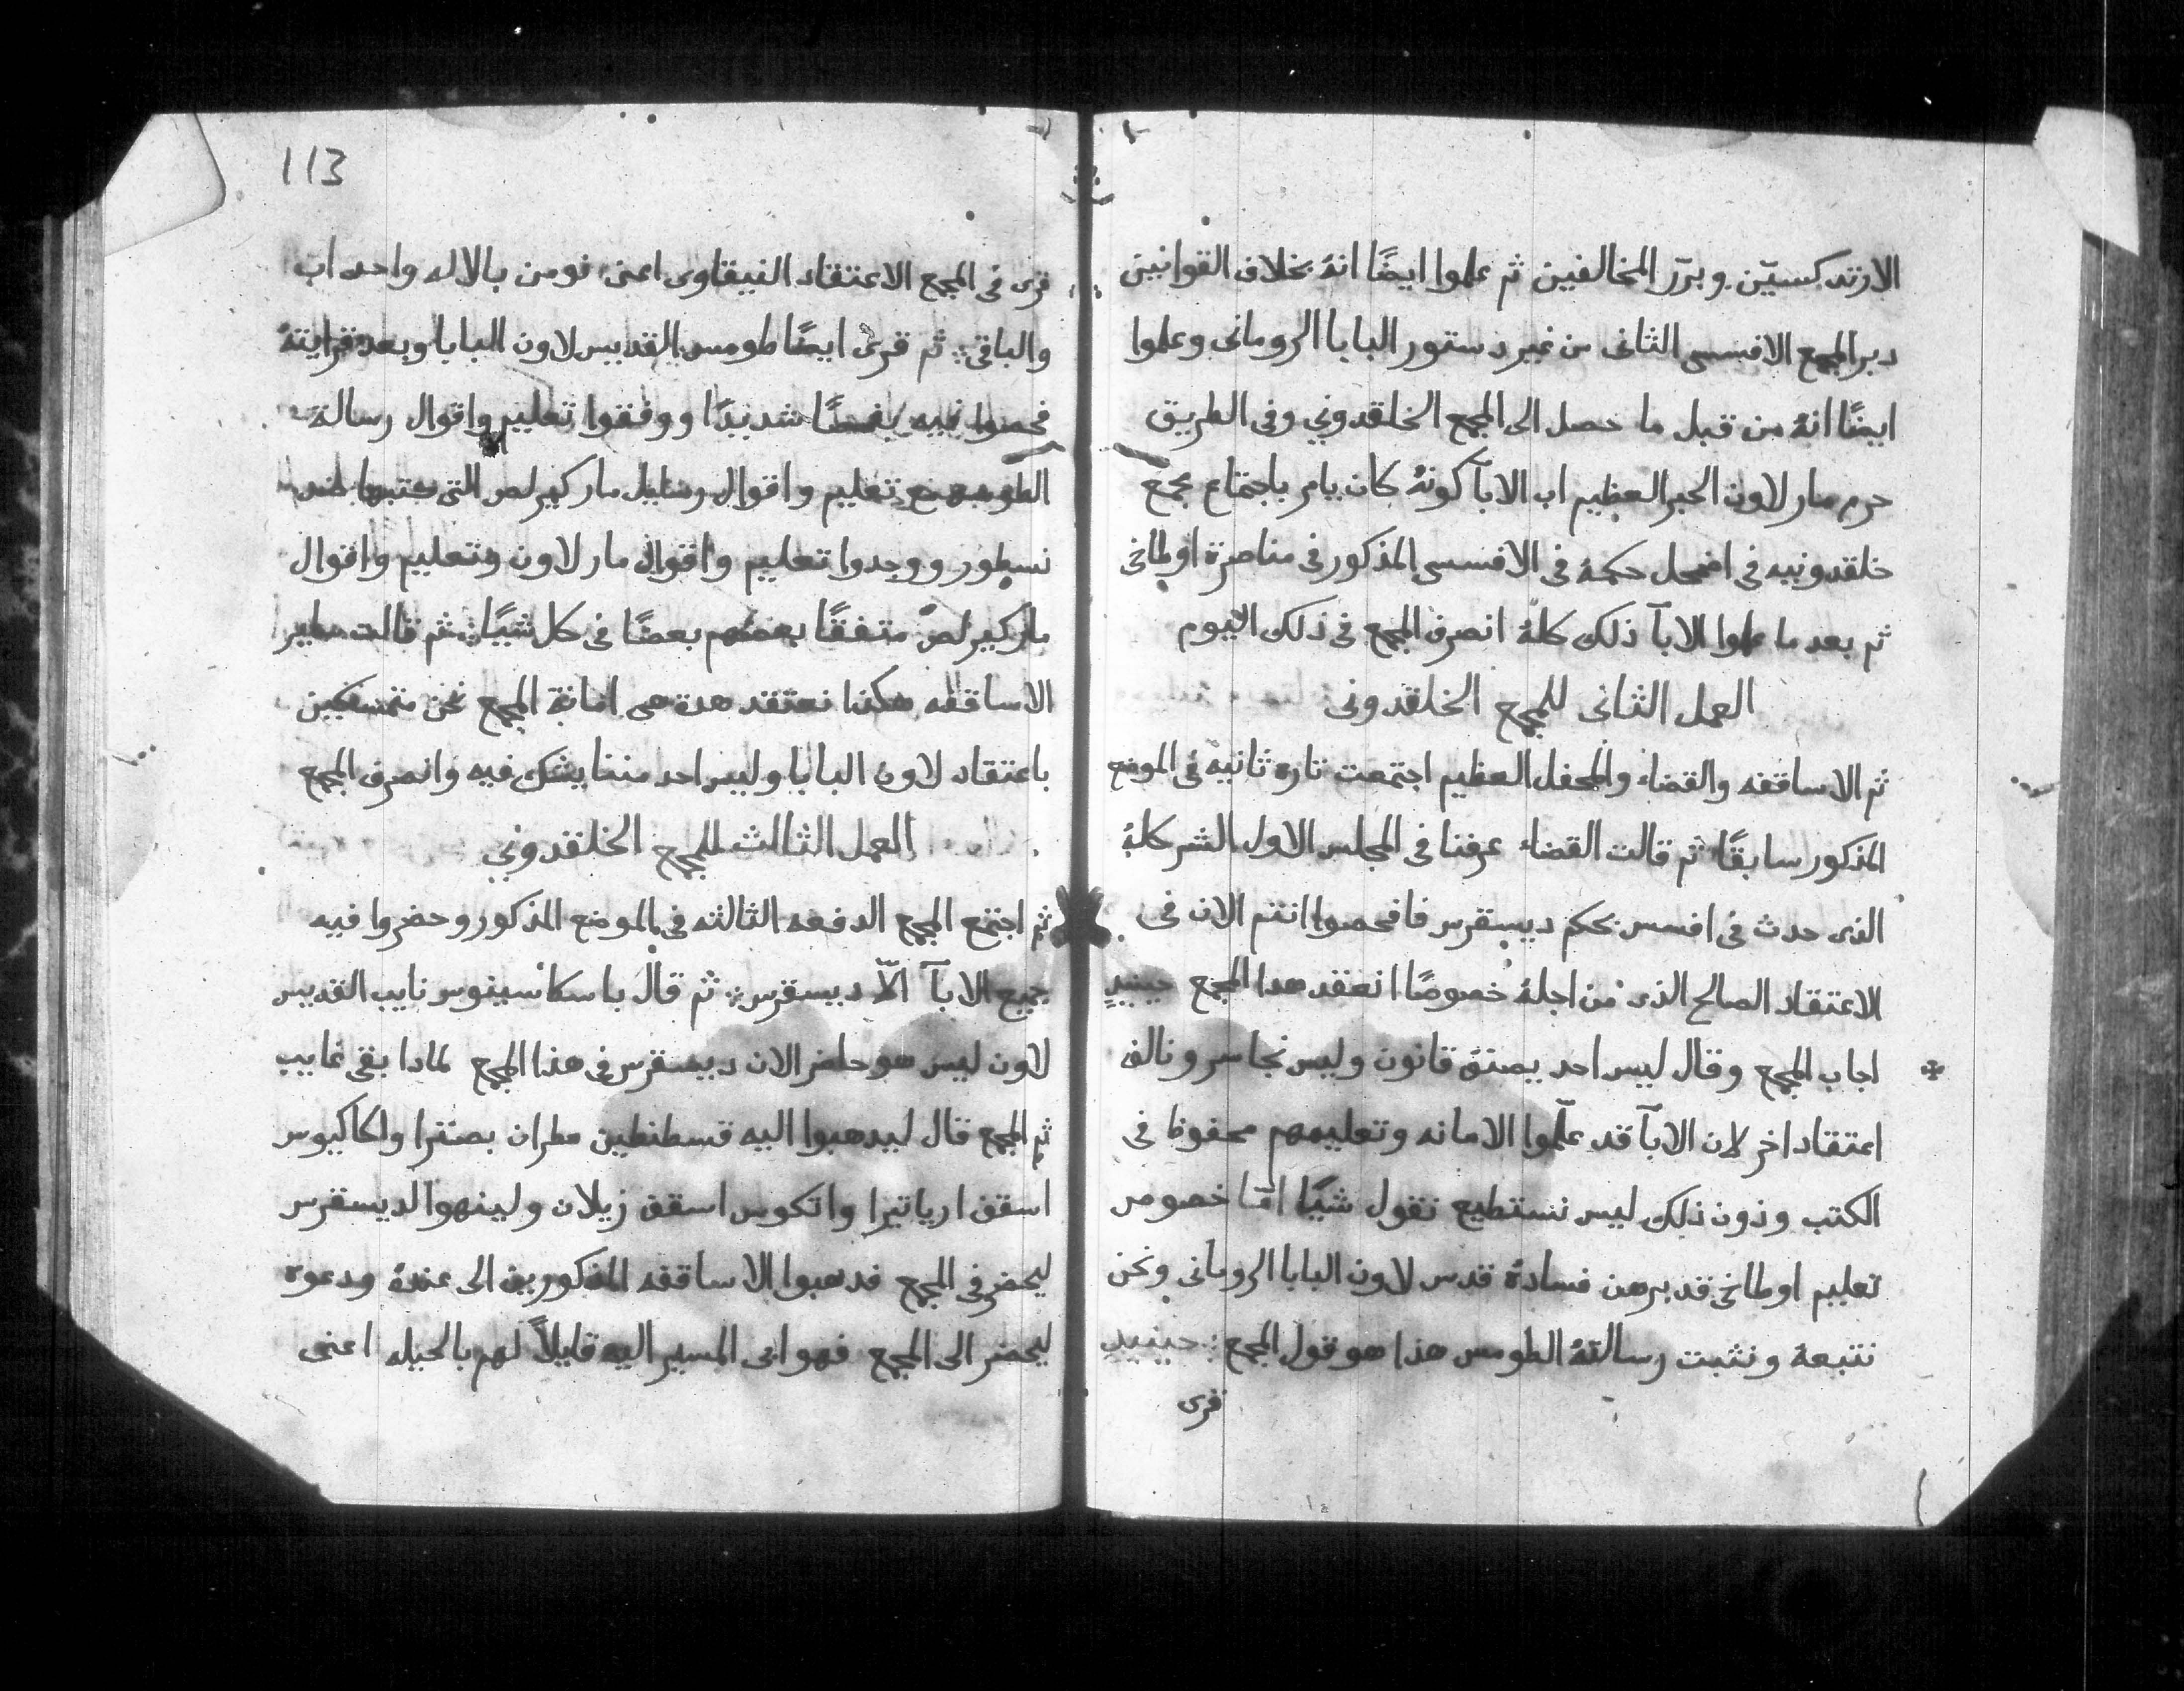 الارتدكسيّن وبرّر المخالفين ثم علموا ايضًا انهُ بخلاف القوانين
دبر المجمع الافسسى الثانى من غير دستور البابا الرومانى وعلموا
ايضًا انهُ من قبل ما حصل الى المجمع الخلقدوني وفى الطريق
حرم مار لاون الحبر العظيم اب الابآ كونهُ كان يامر باجتماع مجمع
خلقدونيه فى اضمحل حكمهُ فى الافسسى المذكور فى مناصرة اوطاخى
ثم بعد ما علموا الابآ ذلك كلهُ انصرف المجمع فى ذلك اليوم
العمل الثانى للمجمع الخلقدونى
ثم الاساقفه والقضاء والمحفل العظيم اجتمعت تاره ثانيه فى الموضع
المذكور سابقًا ثم قالت القضاء عرفنا فى المجلس الاول الشر كلهُ
الذى حدث فى افسس بحكم ديسقرس فافحصوا انتم الان فى
الاعتقاد الصالح الذى من اجلهُ خصوصًا انعقد هدا المجمع حينيدٍ
اجاب المجمع وقال ليس احد يصنع قانون وليس نجاسر ونالف
اعتقاد اخر لان الابآ قد علّموا الامانه وتعليمهم محفوظ فى
الكتب ودون ذلك ليس نستطيع نقول شيًا امّا خصوص
تعليم اوطاخى قد برهن فسادهُ قدس لاون البابا الرومانى ونحن
نتبعهُ ونثبت رسالتهُ الطومس هذا هو قول المجمع حينيدٍ
قرى
113
قرى فى المجمع الاعتقاد النيقاوى اعنى نومن بالاله واحد اب
والباقى ثم قرى ايضًا طومس القديس لاون البابا وبعد قرايتهُ
فحصوا فيه فحصًا شديدًا ووفقوا تعليم واقوال رسالة
الطومس مع تعليم واقوال رسايل مار كيرلص التى كتبها ضد
نسطور ووجدوا تعليم واقوال مار لاون وتعليم واقوال
مار كيرلص متفقًا بعضهم بعضًا فى كل شيًا ثم قالت ساير
الاساقفه هكذا نعتقد هدة هى امانة المجمع نحن متمسكين
باعتقاد لاون البابا وليس احد مننا يشك فيه وانصرف المجمع
العمل الثالث للمجمع الخلقدوني
ثم اجتمع المجمع الدفعه الثالثه فى الموضع المذكور وحضروا فيه
جميع الابآ الّا ديسقرس ثم قال باسكاسينوس نايب القديس
لاون ليس هو حاضر الان ديسقرس فى هذا المجمع لمادا بقى غايب
ثم المجمع قال ليدهبوا اليه قسطنطين مطران بصترا واكاكيوس
اسقف ارياتيرا واتكوس اسقف زيلان ولينهوا لديسقرس
ليحضر فى المجمع فدهبوا الاساقفه المذكورين الى عندهُ ودعوه
ليحضر الى المجمع فهو ابى المسير اليه قايلاً لهم بالحيله اعنى